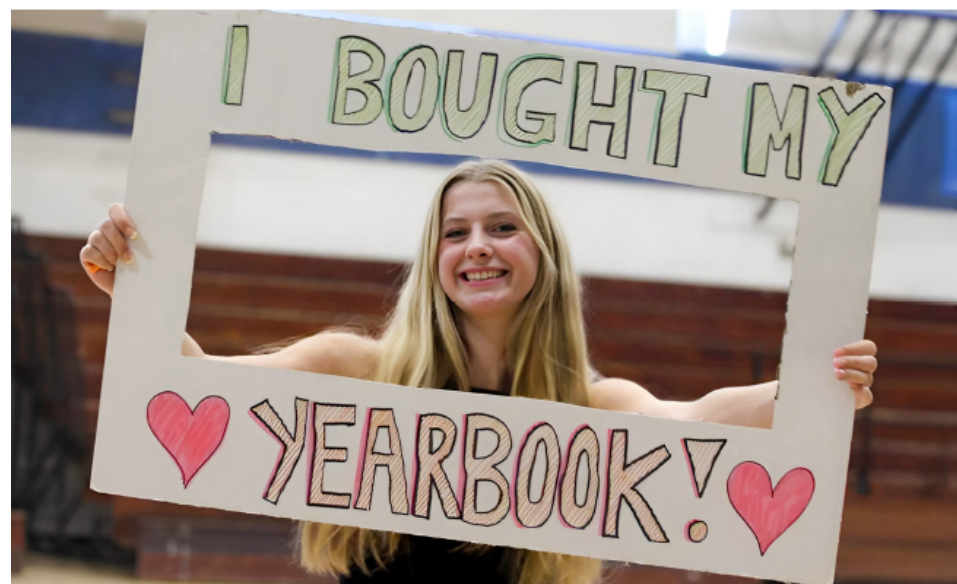 I BOUGHT MY
YEARBOOK!